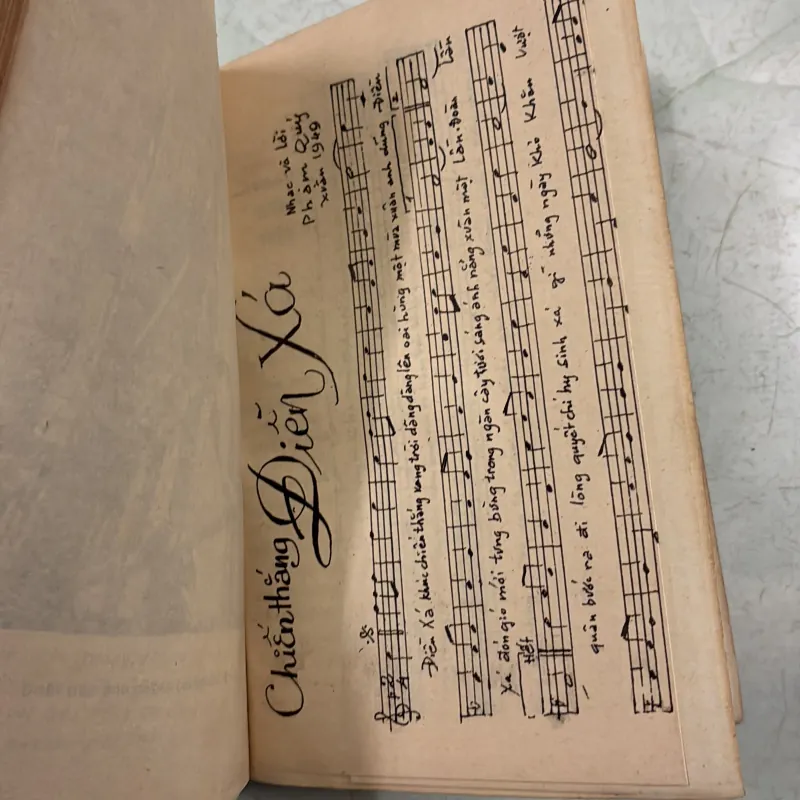 Chiến thắng
Điễn Xá
Nhạc và Lời
Phạm Quý
xuân 1949
Điễn Xá khúc chiến thắng vang trời dâng dâng lên oai hùng một mùa xuân anh dũng Điễn
Xá đón gió mới tưng bừng trong ngàn cây tươi sáng ánh nắng xuân mật Lần. Đoàn Lần
Hết
quân bước ra đi lòng quyết chí hy sinh xá gì những ngày khó khăn vượt